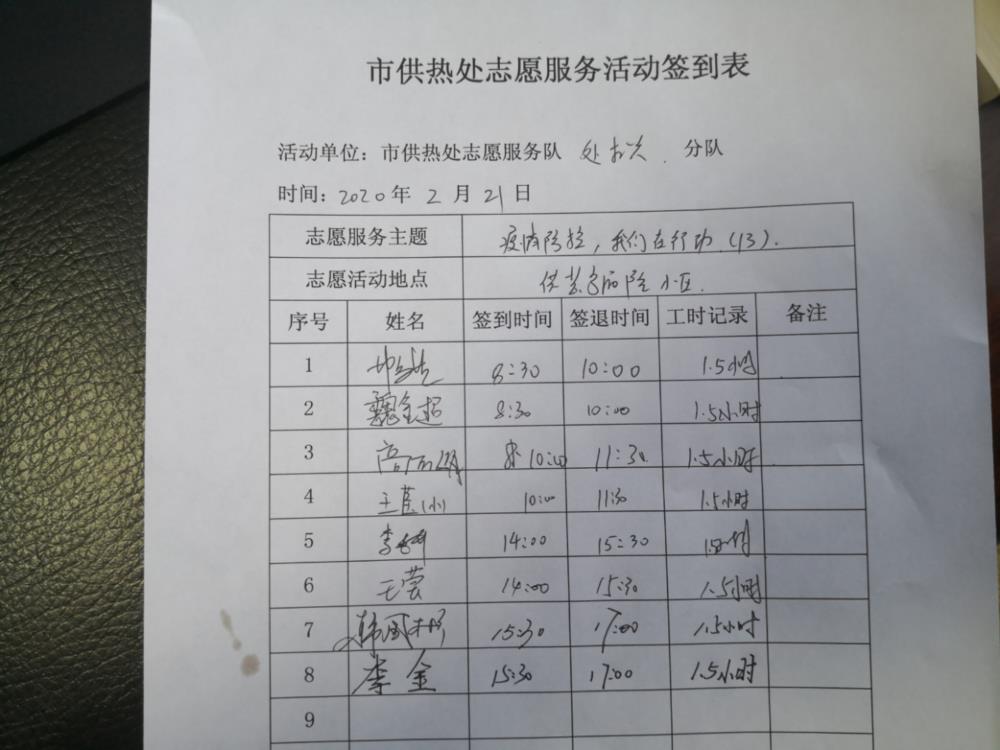 市供热处志愿服务活动签到表
活动单位：市供热处志愿服务队 处机关 分队
时间：2020年 2 月 21 日
志愿服务主题 疫情防控，我们在行动（13）.
志愿活动地点 供热 小区.
序号 姓名 签到时间 签退时间 工时记录 备注
1 8:30 10:00 1.5小时
2 魏金超 8:30 10:00 1.5小时
3 高 10:00 11:30 1.5小时
4 王 （小） 10:00 11:30 1.5小时
5 李 14:00 15:30 1.5小时
6 王莹 14:00 15:30 1.5小时
7 韩国栋 15:30 17:00 1.5小时
8 李金 15:30 17:00 1.5小时
9